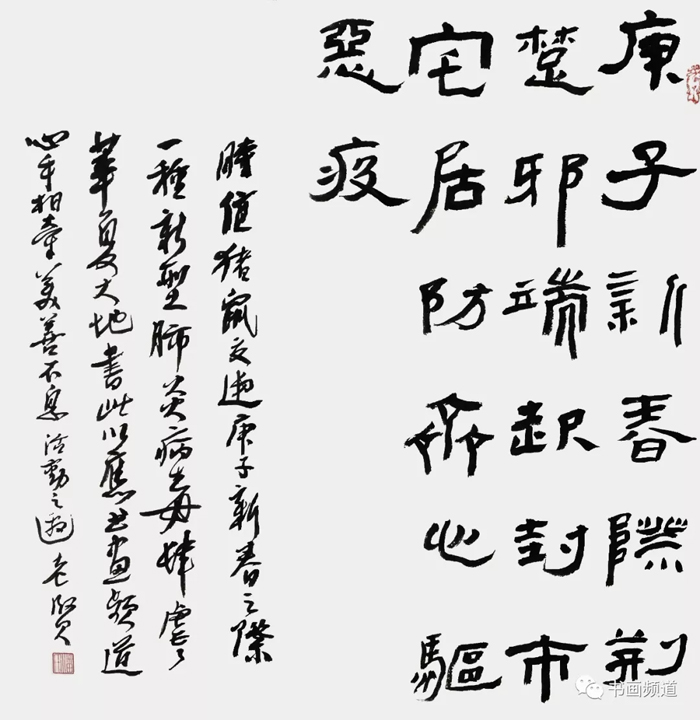 庚子新春際荆
楚邪端起封市
宅居防齊心驅
惡疫
時值猪鼠交遞庚子新春之際
一種新型肺炎病毒肆虐
華夏大地書此以應書畫頻道
心手相牽美善不息活動之邀
书画频道